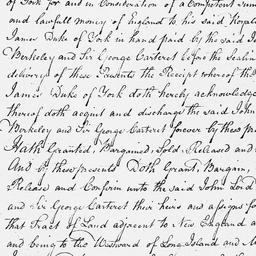 of York for and in Consideration of a Competent sum
and lawfull money of england to his said Royal
James Duke of York in hand paid by the said J
Berkeley and Sir George Carteret before the Sealin
delivery of these Presents the Receipt whereof the
James Duke of York doth hereby acknowledge
thereof doth acquit and discharge the said John
Berkeley and Sir George Carteret forever by these pre
Hath Granted, Bargained, Sold, Released and
And by these presents Doth Grant, Bargain,
Release and Confirm unto the said John Lord
and Sir George Carteret their heirs and assigns fo
that Tract of Land adjacent to New England a
and being to the Westward of Long Island and M